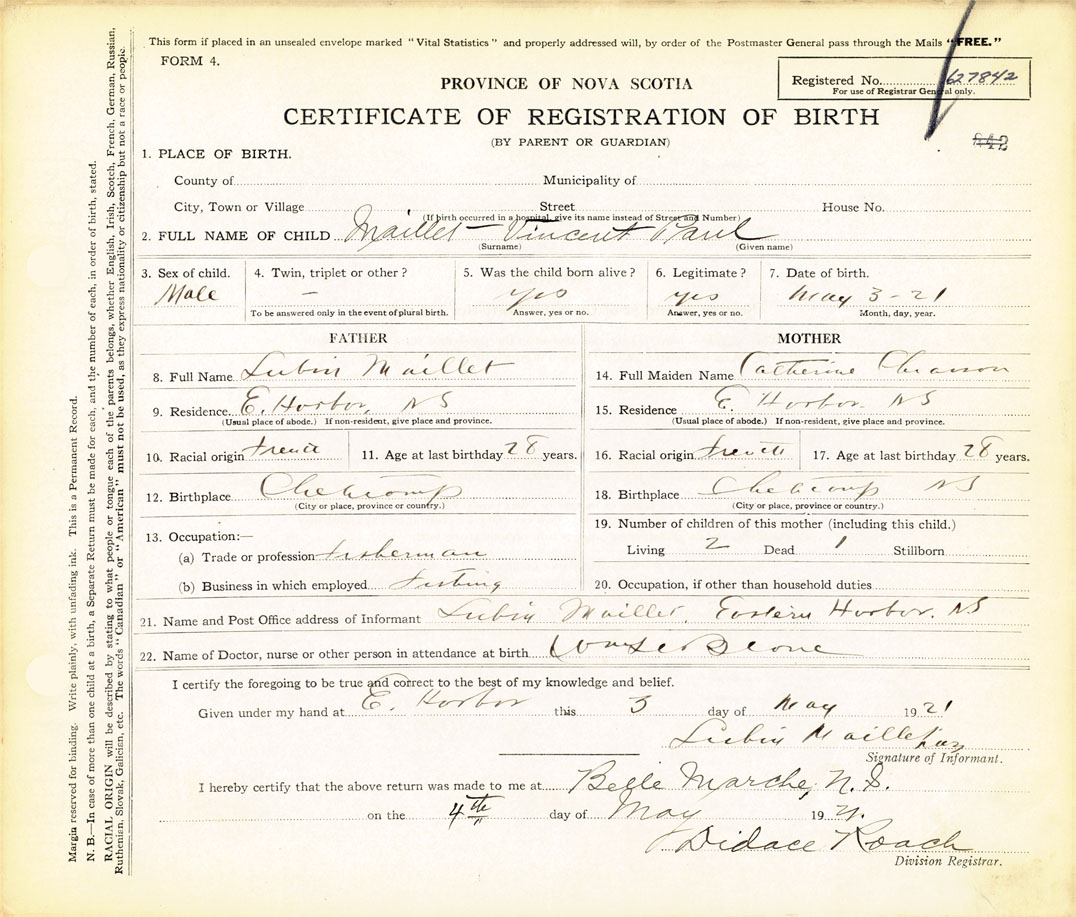 This form if placed in an unsealed envelope marked "Vital Statistics" and properly addressed will, by order of the Postmaster General pass through the Mails "FREE."
FORM 4.
Registered No. 627842
For use of Registrar General only.
PROVINCE OF NOVA SCOTIA
CERTIFICATE OF REGISTRATION OF BIRTH
(BY PARENT OR GUARDIAN)
842
1. PLACE OF BIRTH.
County of Municipality of
City, Town or Village Street House No.
(If birth occurred in a hospital, give its name instead of Street and Number)
2. FULL NAME OF CHILD Maillet Vincent Paul
(Surname) (Given name)
3. Sex of child. 4. Twin, triplet or other? 5. Was the child born alive? 6. Legitimate? 7. Date of birth.
Male — yes yes May 3-21
To be answered only in the event of plural birth. Answer, yes or no. Answer, yes or no. Month, day, year.
FATHER
8. Full Name Lubin Maillet
9. Residence E. Harbor, NS
(Usual place of abode.) If non-resident, give place and province.
10. Racial origin French 11. Age at last birthday 28 years.
12. Birthplace Cheticamp
(City or place, province or country.)
13. Occupation:—
(a) Trade or profession Fisherman
(b) Business in which employed Fishing
MOTHER
14. Full Maiden Name Catherine Chiasson
15. Residence E. Harbor NS
(Usual place of abode.) If non-resident, give place and province.
16. Racial origin French 17. Age at last birthday 28 years.
18. Birthplace Cheticamp NS
(City or place, province or country.)
19. Number of children of this mother (including this child.)
Living 2 Dead 1 Stillborn
20. Occupation, if other than household duties
21. Name and Post Office address of Informant Lubin Maillet, Eastern Harbor, NS
22. Name of Doctor, nurse or other person in attendance at birth
I certify the foregoing to be true and correct to the best of my knowledge and belief.
Given under my hand at E. Harbor this 3 day of May 1921
Lubin Maillet
Signature of Informant.
I hereby certify that the above return was made to me at Belle Marche, N.S.
on the 4th day of May 1921.
Didace Roach
Division Registrar.
Margin reserved for binding. Write plainly, with unfading ink. This is a Permanent Record.
N. B.—In case of more than one child at a birth, a Separate Return must be made for each, and the number of each, in order of birth, stated.
RACIAL ORIGIN will be described by stating to what people or tongue each of the parents belongs, whether English, Irish, Scotch, French, German, Russian,
Ruthenian, Slovak, Galician, etc. The words "Canadian" or "American" must not be used, as they express nationality or citizenship but not a race or people.